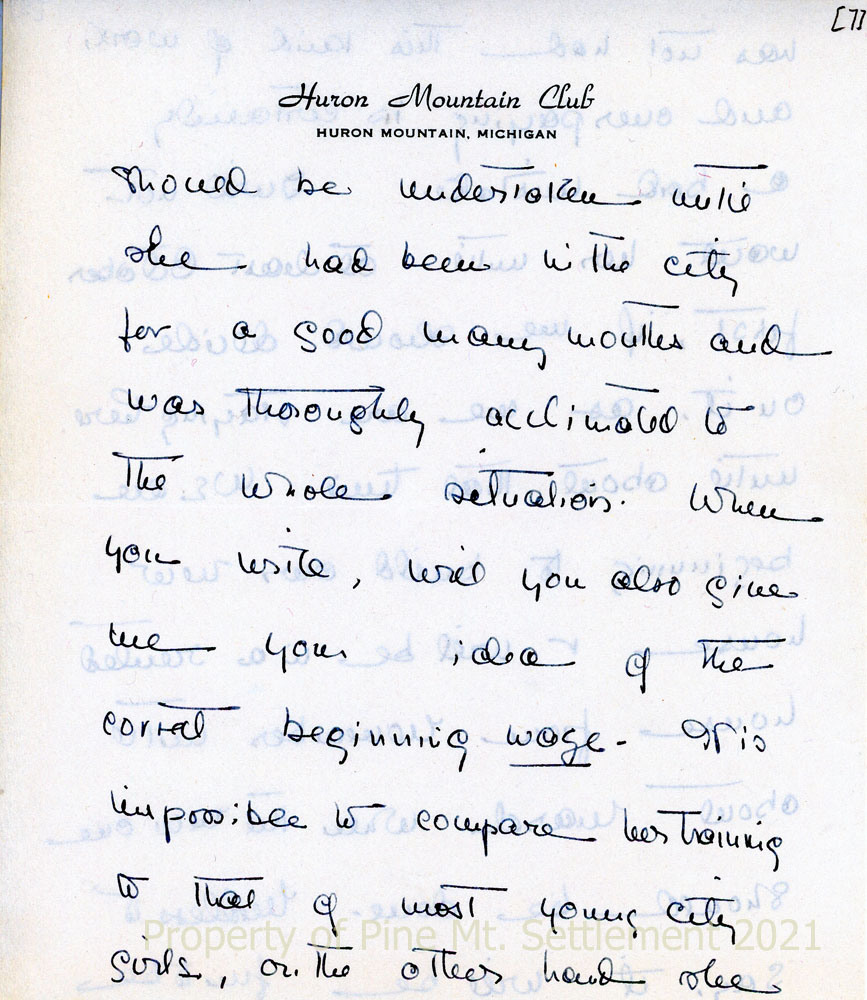 [7]
Huron Mountain Club
HURON MOUNTAIN, MICHIGAN
should be undertaken until
she had been in the city
for a good many months and
was thoroughly acclimated to
the whole situation. When
you write, will you also give
me your idea of the
correct beginning wage - It is
impossible to compare her training
to that of most young city
girls, on the other hand she
Property of Pine Mt. Settlement 2021